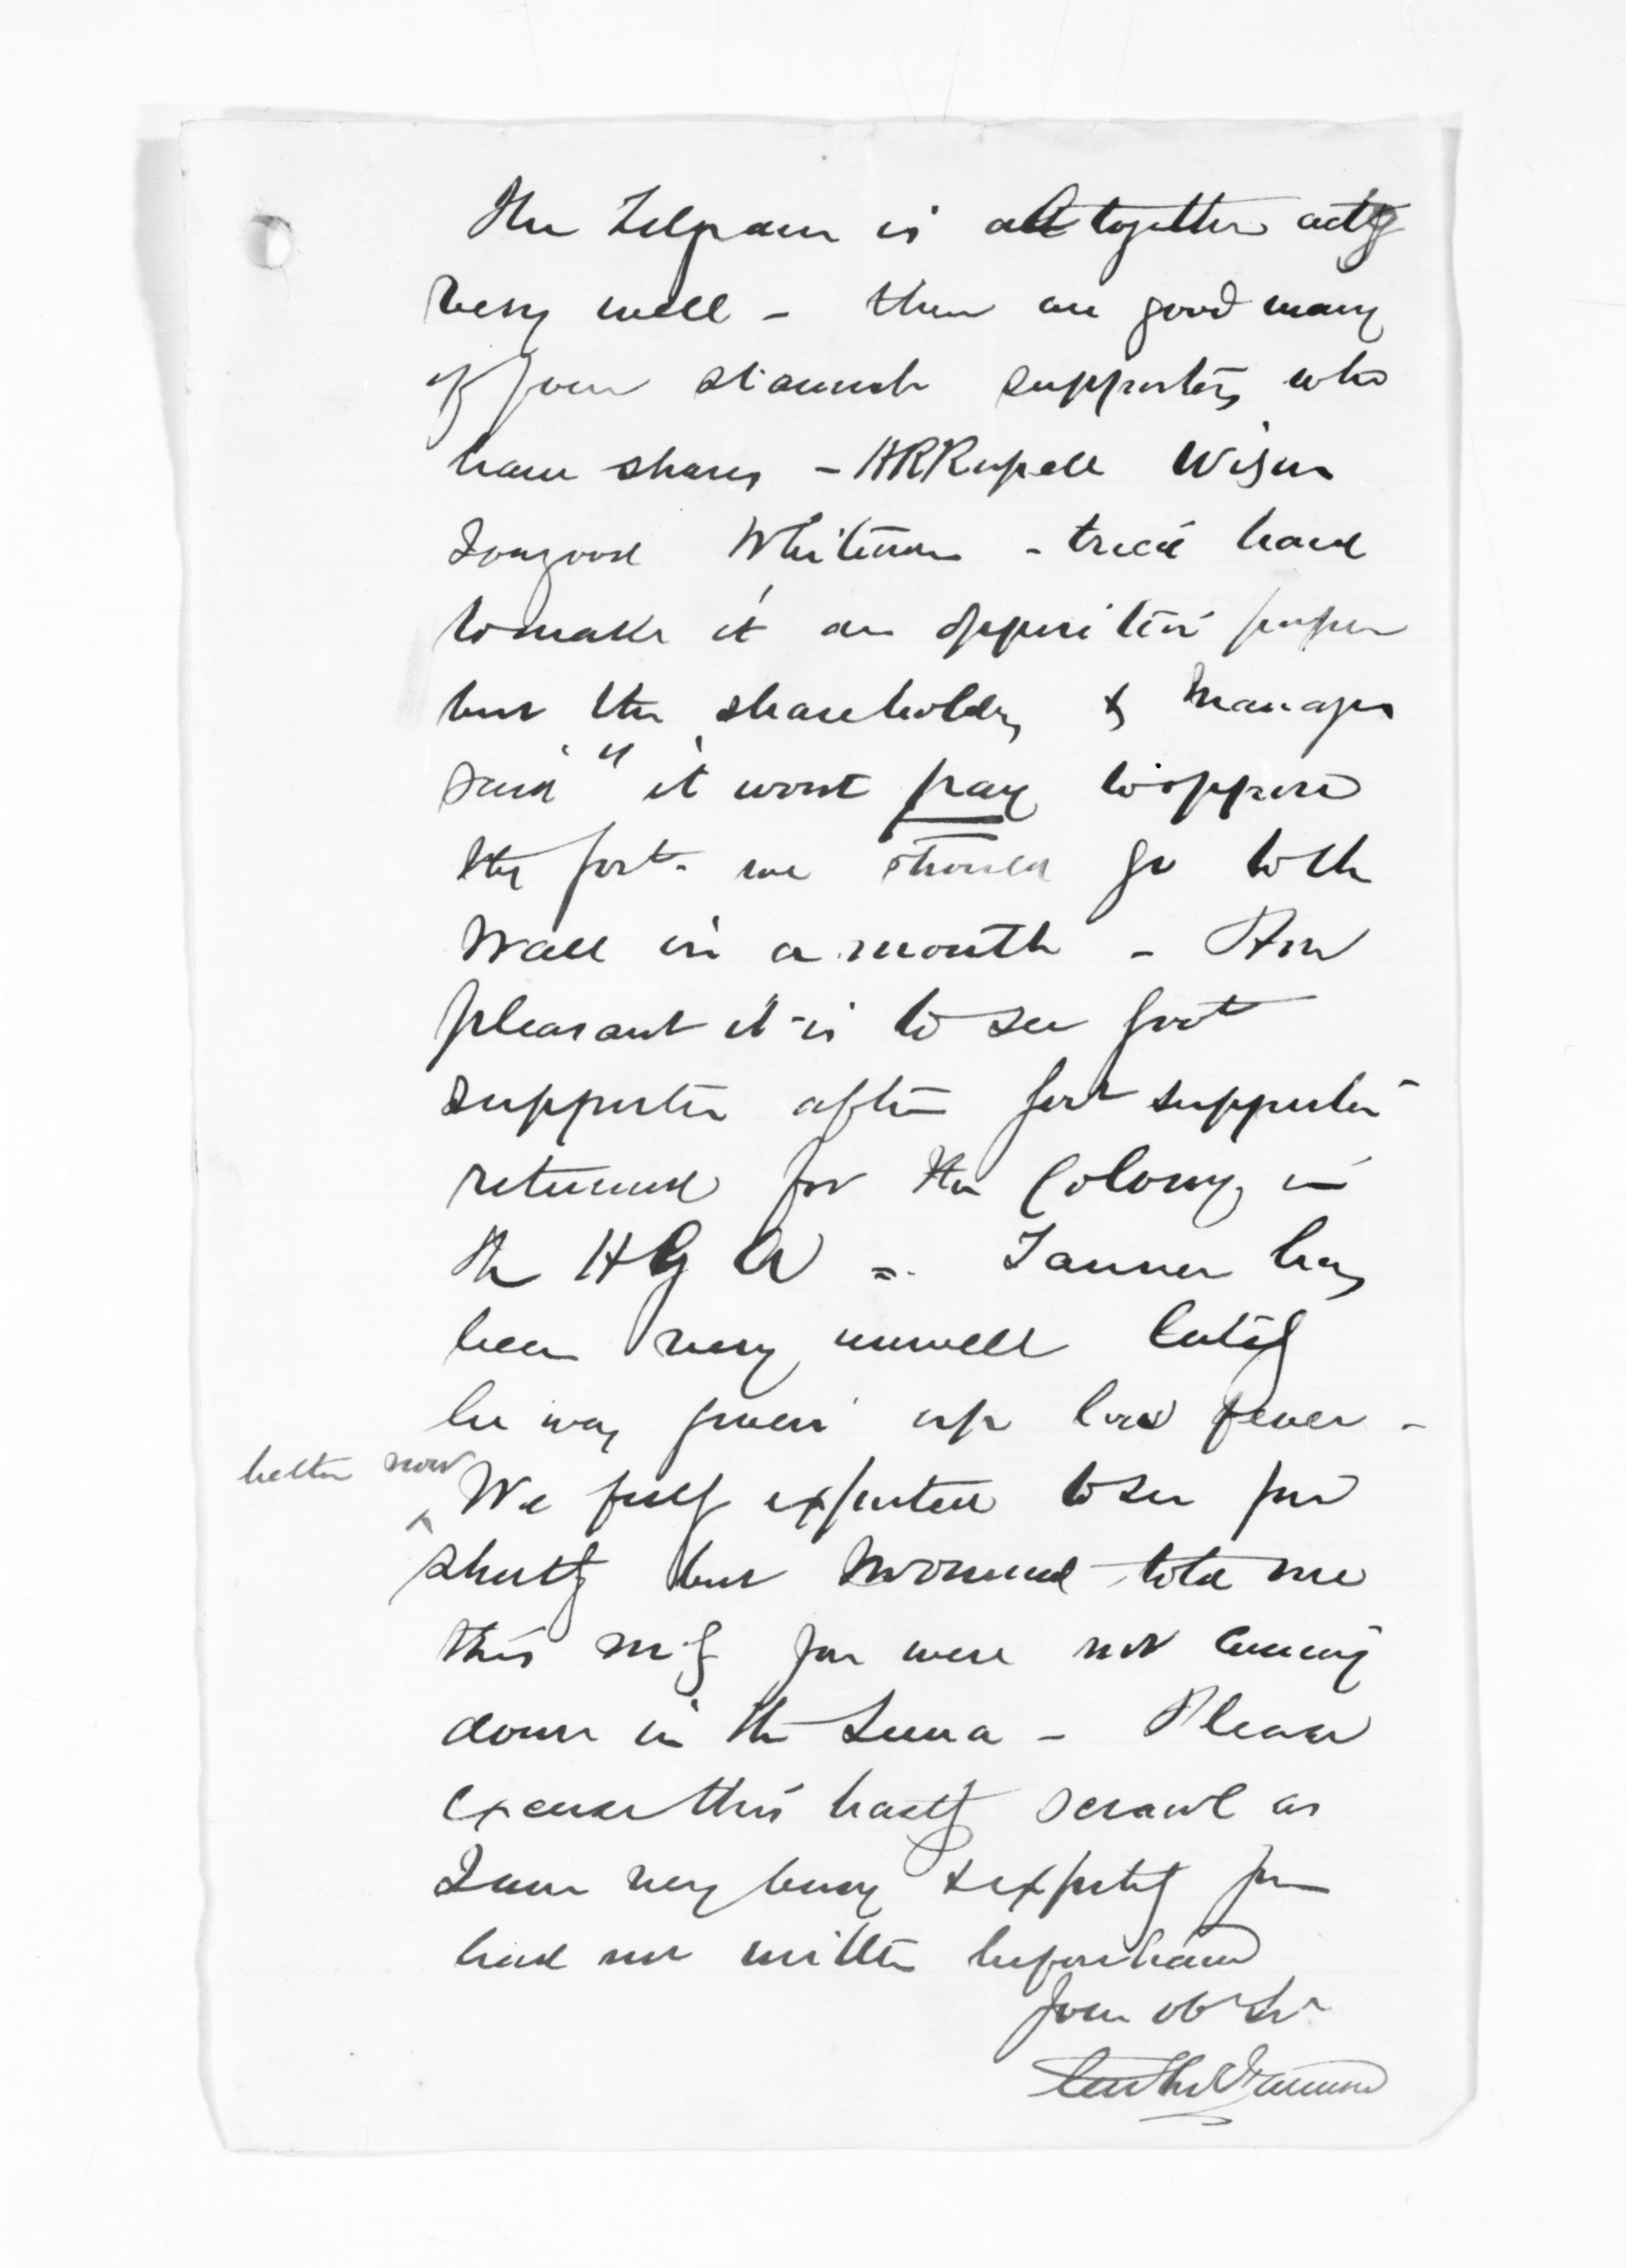 The Telegram is altogether actg
very well - there are good many
of your staunch supporters who
have shares - HRRussell
Whitmore - tried hard
to make it an opposition paper
but the shareholders & Manager
said "it wont pay to oppose
the Govt. we should go to the
Wall in a month - How
pleasant it is to see Govt
supporter after Govt supporter
returned for the Colony in
the H of A - Tanner has
been very unwell lately
he was given up low fever -
better now
We fully expected to see you
shortly but told me
this mg you were not coming
down in the Luna - Please
excuse this hasty scrawl as
I am very busy & expectg you
had not written beforehand
Your ob Sr